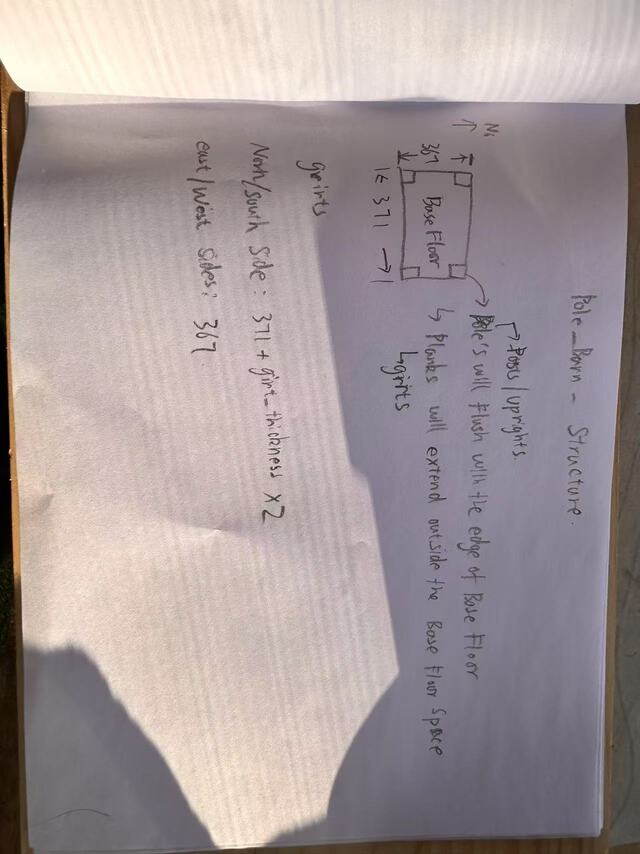 Pole-Barn-Structure.
↳ Posts/uprights.
Pole's will flush with the edge of Base Floor
↳ Planks will extend outside the Base Floor Space
↳ girts
N↑
367
Base Floor
|← 371 →|
geirts
North/South Side: 371 + girt-thickness x2
east/West Sides: 367.